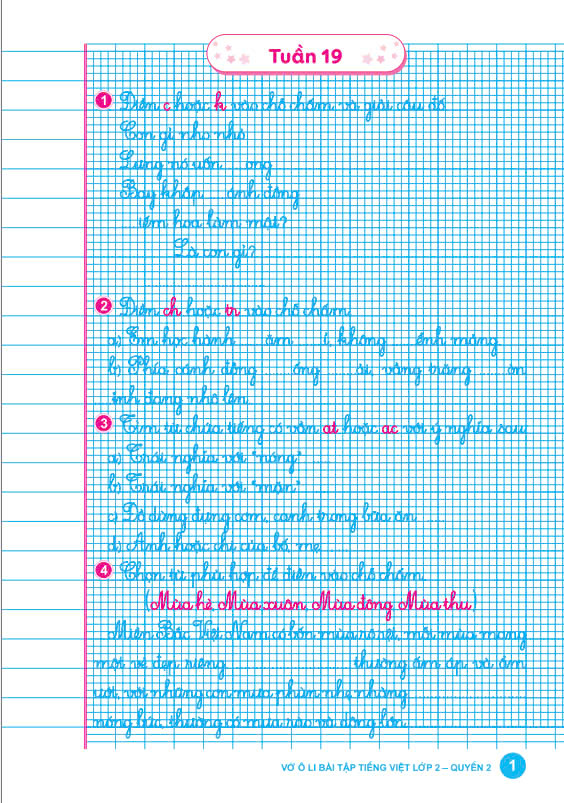 Tuần 19
1 Điền c hoặc k vào chỗ chấm và giải câu đố
Con gì nho nhỏ
Lưng nó uốn ong
Bay khắp ánh đồng
....iếm hoa làm mật?
Là con gì?
..............................
2 Điền ch hoặc tr vào chỗ chấm.
a) Em học hành .... ăm .... ỉ, không .... ểnh mảng.
b) Phía cánh đồng ..... ống ..... ải, vầng trăng ..... òn
ịnh đang nhô lên.
3 Tìm từ chứa tiếng có vần at hoặc ac với ý nghĩa sau
a) Trái nghĩa với "nóng" .....
b) Trái nghĩa với "mặn" .....
c) Đồ dùng đựng cơm, canh trong bữa ăn .....
d) Anh hoặc chị của bố, mẹ .....
4 Chọn từ phù hợp để điền vào chỗ chấm.
(Mùa hè, Mùa xuân, Mùa đông, Mùa thu)
Miền Bắc Việt Nam có bốn mùa rõ rệt, mỗi mùa mang
một vẻ đẹp riêng. .............................. thường ấm áp và ẩm
ướt, với những cơn mưa phùn nhẹ nhàng. ..............................
nóng bức, thường có mưa rào và dông lớn.
VỞ Ô LI BÀI TẬP TIẾNG VIỆT LỚP 2 – QUYỂN 2 1